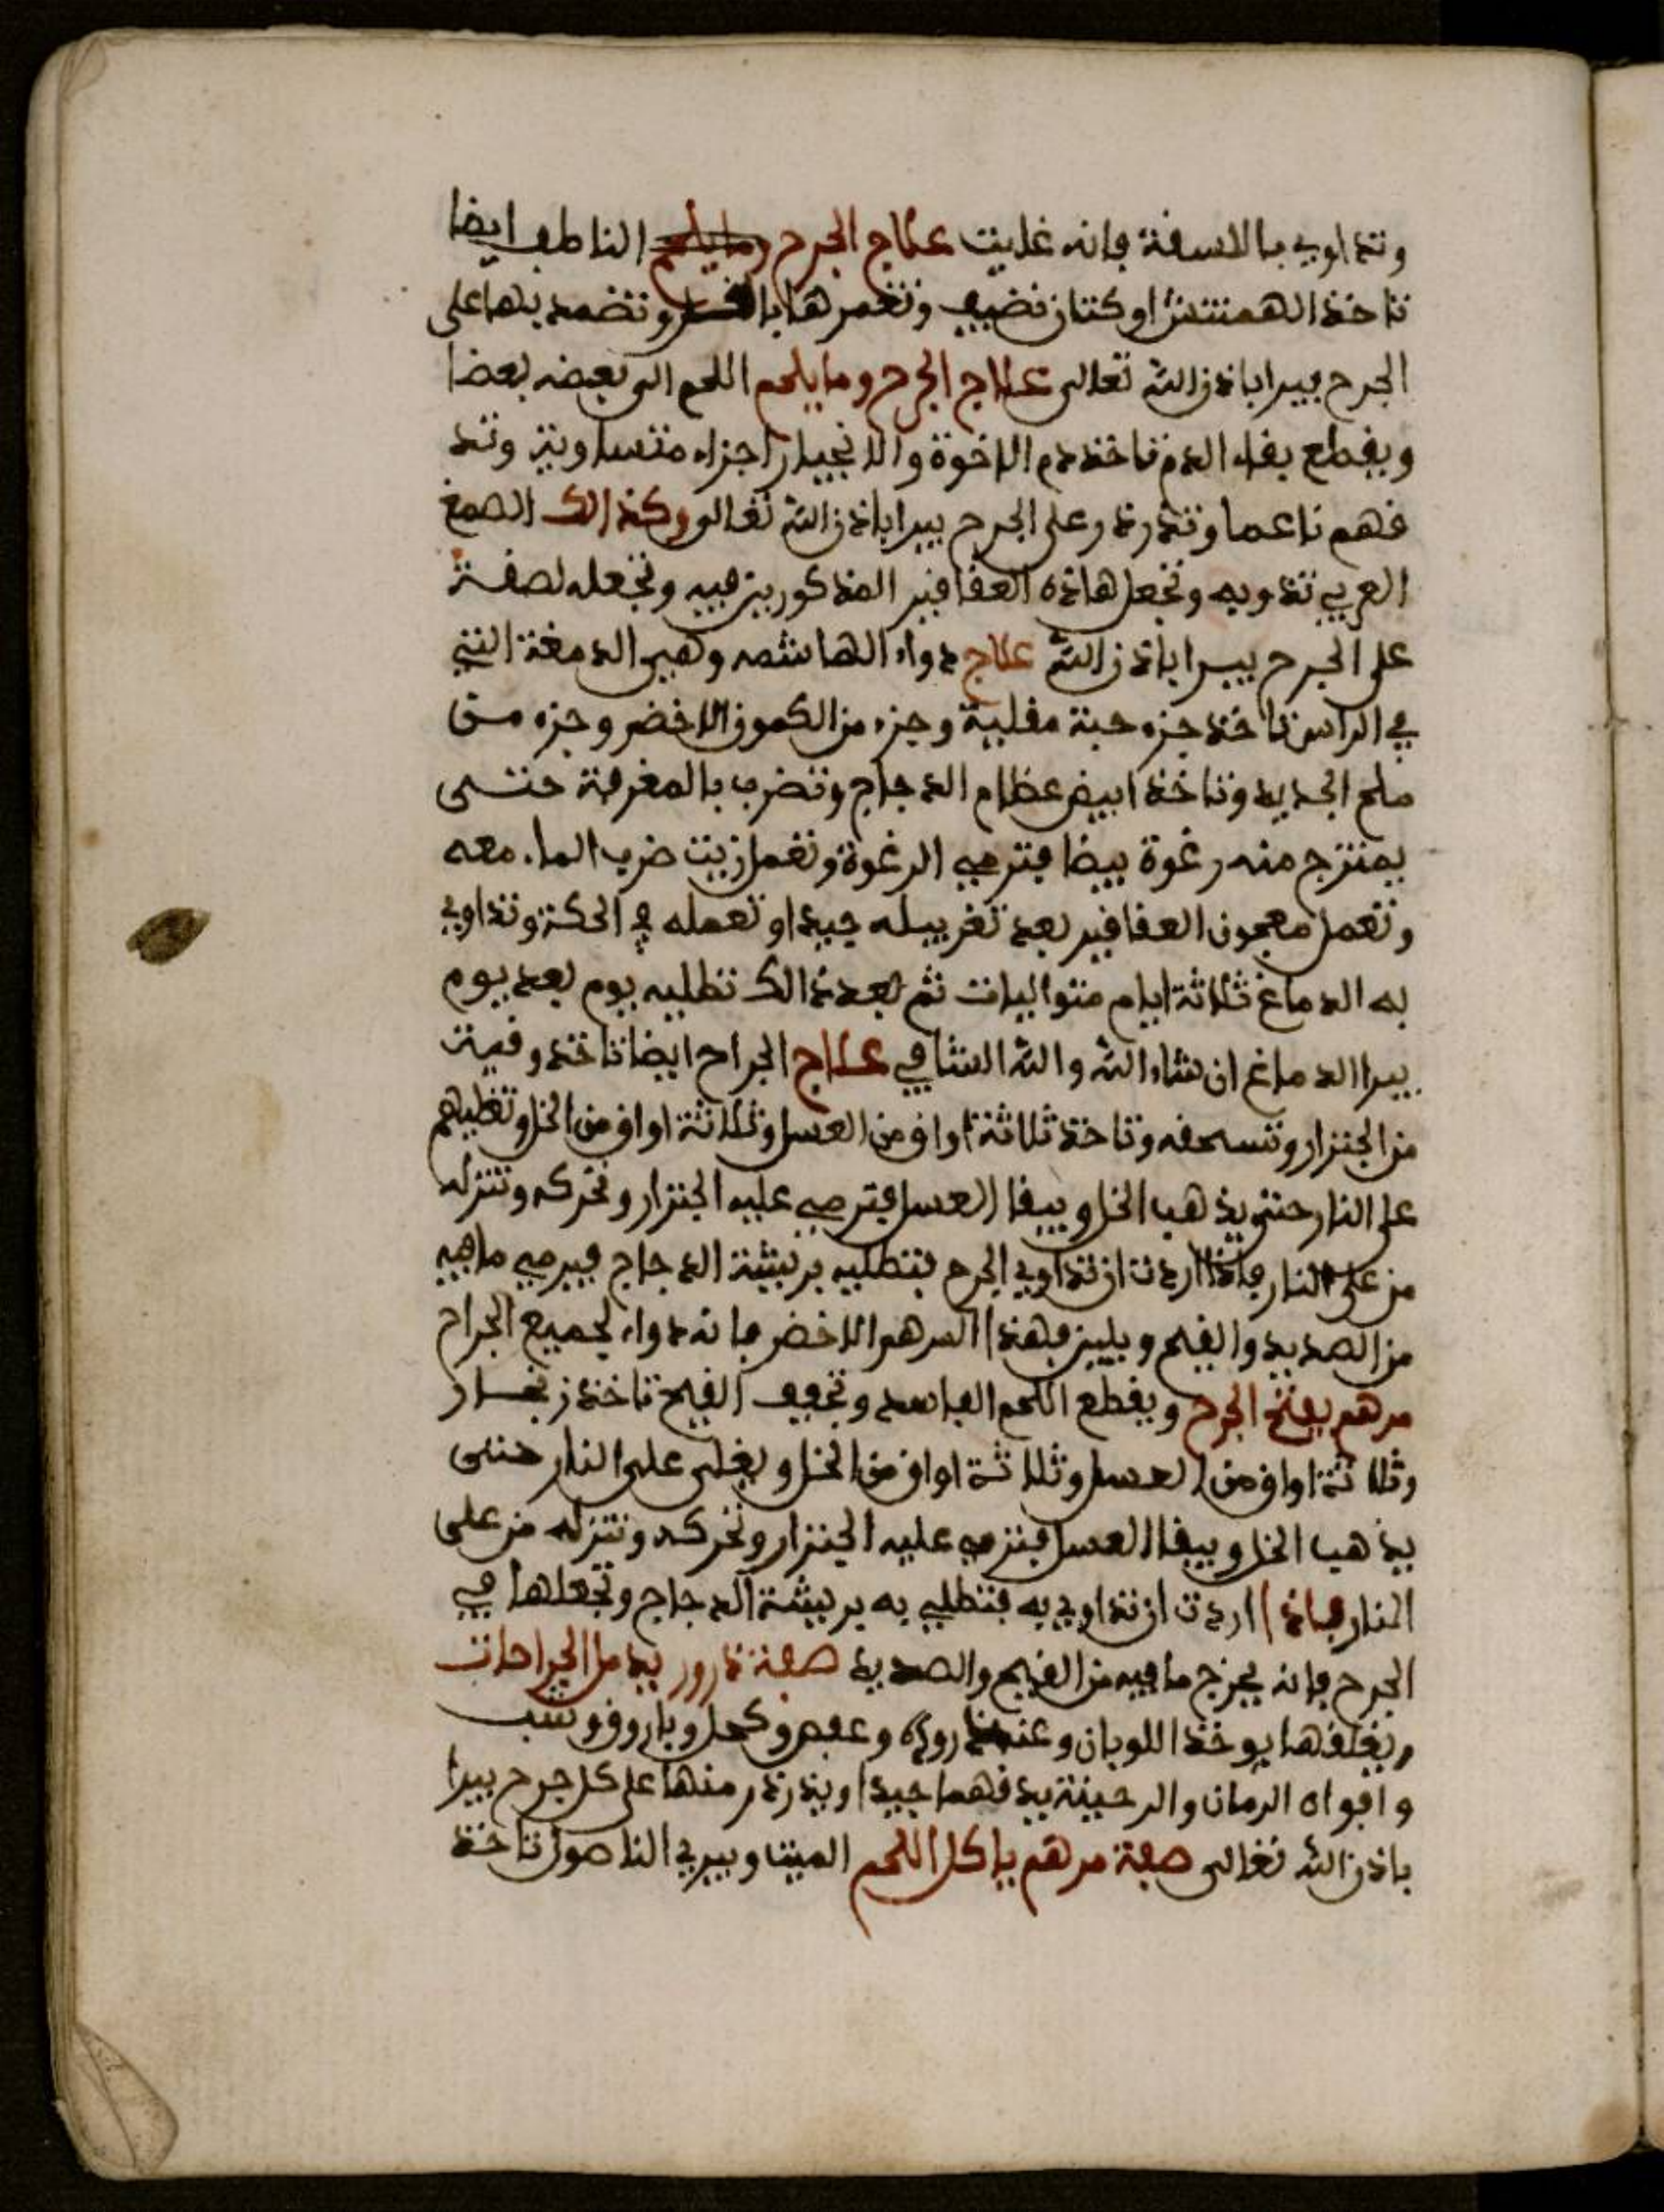 وتداوي بالاسفنة فإنه غايت علاج الجرح وما يلحم الناطف ايضا
تاخذ الهمنتش او كتان نضيف وتغمرها بالعسل وتضمد بهما على
الجرح يبرا باذن الله تعالى علاج الجرح وما يلحم اللحم الى بعضه بعضا
ويقطع بقاء الدم تاخذ دم الاخوة والانجبار اجزاء متساوية وتد
قهم ناعما وتذرذر على الجرح يبرا باذن الله تعالى وكذالك الصمغ
العربي تذويه وتجعل هاذه العقاقير المذكورين فيه وتجعله لصقة
على الجرح يبرا باذن الله علاج دواء الهاشمه وهي الدمغة التي
في الراس تاخذ جزء حبة مقلية وجزء من الكمون الاخضر وجزء من
ملح الحديد وتاخذ ابيض عظام الدجاج وتضرب بالمغرفة حتى
يمتزج منه رغوة بيضا فترمي الرغوة وتعمل زيت ضرب الماء معه
وتعمل معجون العقاقير بعد تغربيله جيدا وتعمله في الحكة وتداوي
به الدماغ ثلاثة ايام متواليات ثم بعد ذالك تطليه يوم بعد يوم
يبرا الدماغ ان شاء الله والله الشافي علاج الجراح ايضا تاخذ وقية
من الجنزار وتسحقه وتاخذ ثلاثة اواق من العسل وثلاثة اواق من الخل وتغطيهم
على النار حتى يذهب الخل ويبقا العسل فترمي عليه الجنزار وتحركه وتنزله
من على النار فاذا اردت ان تداوي الجرح فتطليه بريشة الدجاج فيرمي ما فيه
من الصديد والقيح ويلين فهذا المرهم الاخضر فانه دواء لجميع الجراح
مرهم يفتح الجرح ويقطع اللحم الفاسد وتجفف القيح تاخذ زنجار
وثلاثة اواق من العسل وثلاثة اواق من الخل ويغلى على النار حتى
يذهب الخل ويبقا العسل فترمي عليه الجنزار وتحركه وتنزله من على
النار فاذا اردت ان تداوي به فتطلي به بريشة الدجاج وتجعلها في
الجرح فإنه يخرج ما فيه من القيح والصديد صفة ذرور يدمل الجراحات
ويغلقها يوخذ اللوبان وعنزروت وعفص وكحل وباروق وشب
واقواه الرمان والرحينة يدقهما جيدا ويذرذر منها على كل جرح يبرا
باذن الله تعالى صفة مرهم ياكل اللحم الميت ويبري الناصور تاخذ